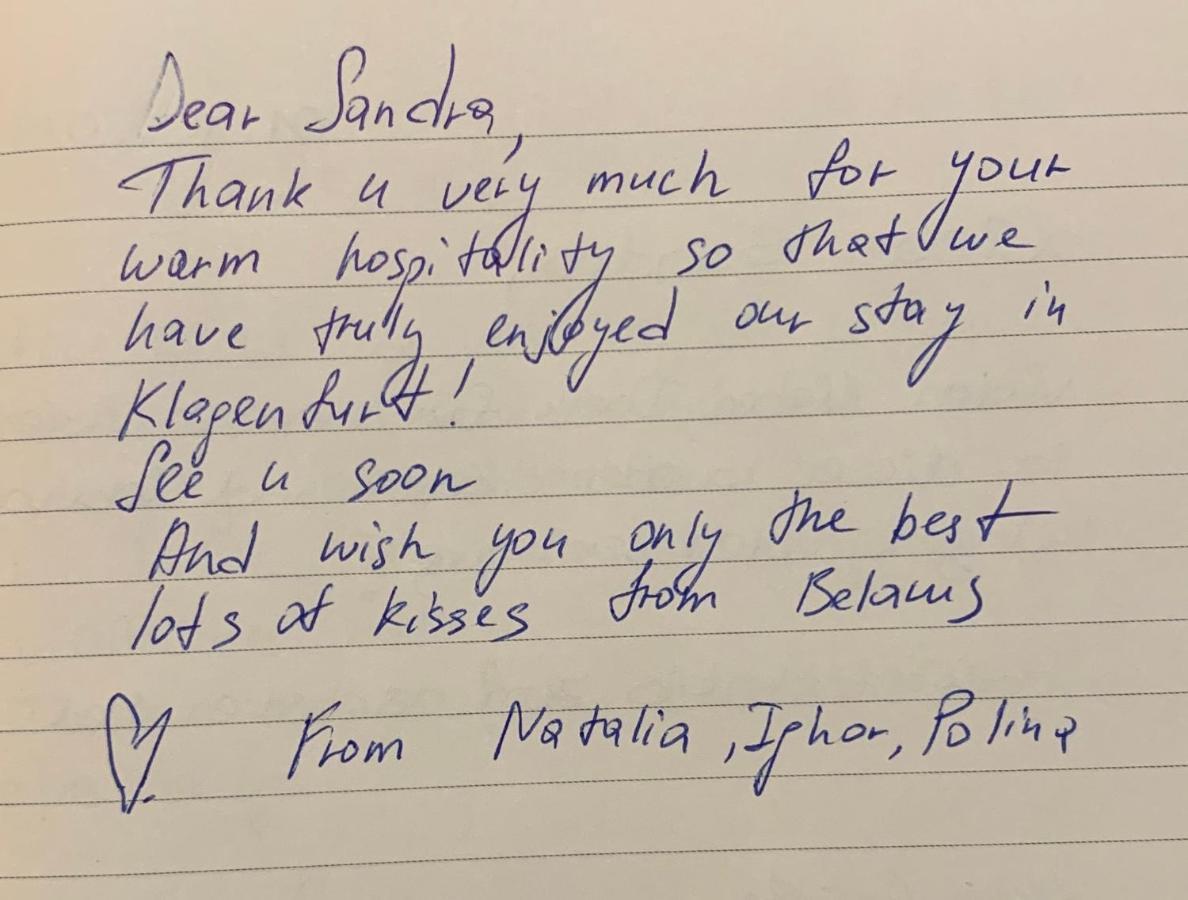 Dear Sandra,
Thank u very much for your
warm hospitality so that we
have truly enjoyed our stay in
Klagenfurt!
See u soon
And wish you only the best
lots of kisses from Belarus
From Natalia, Ighor, Polina